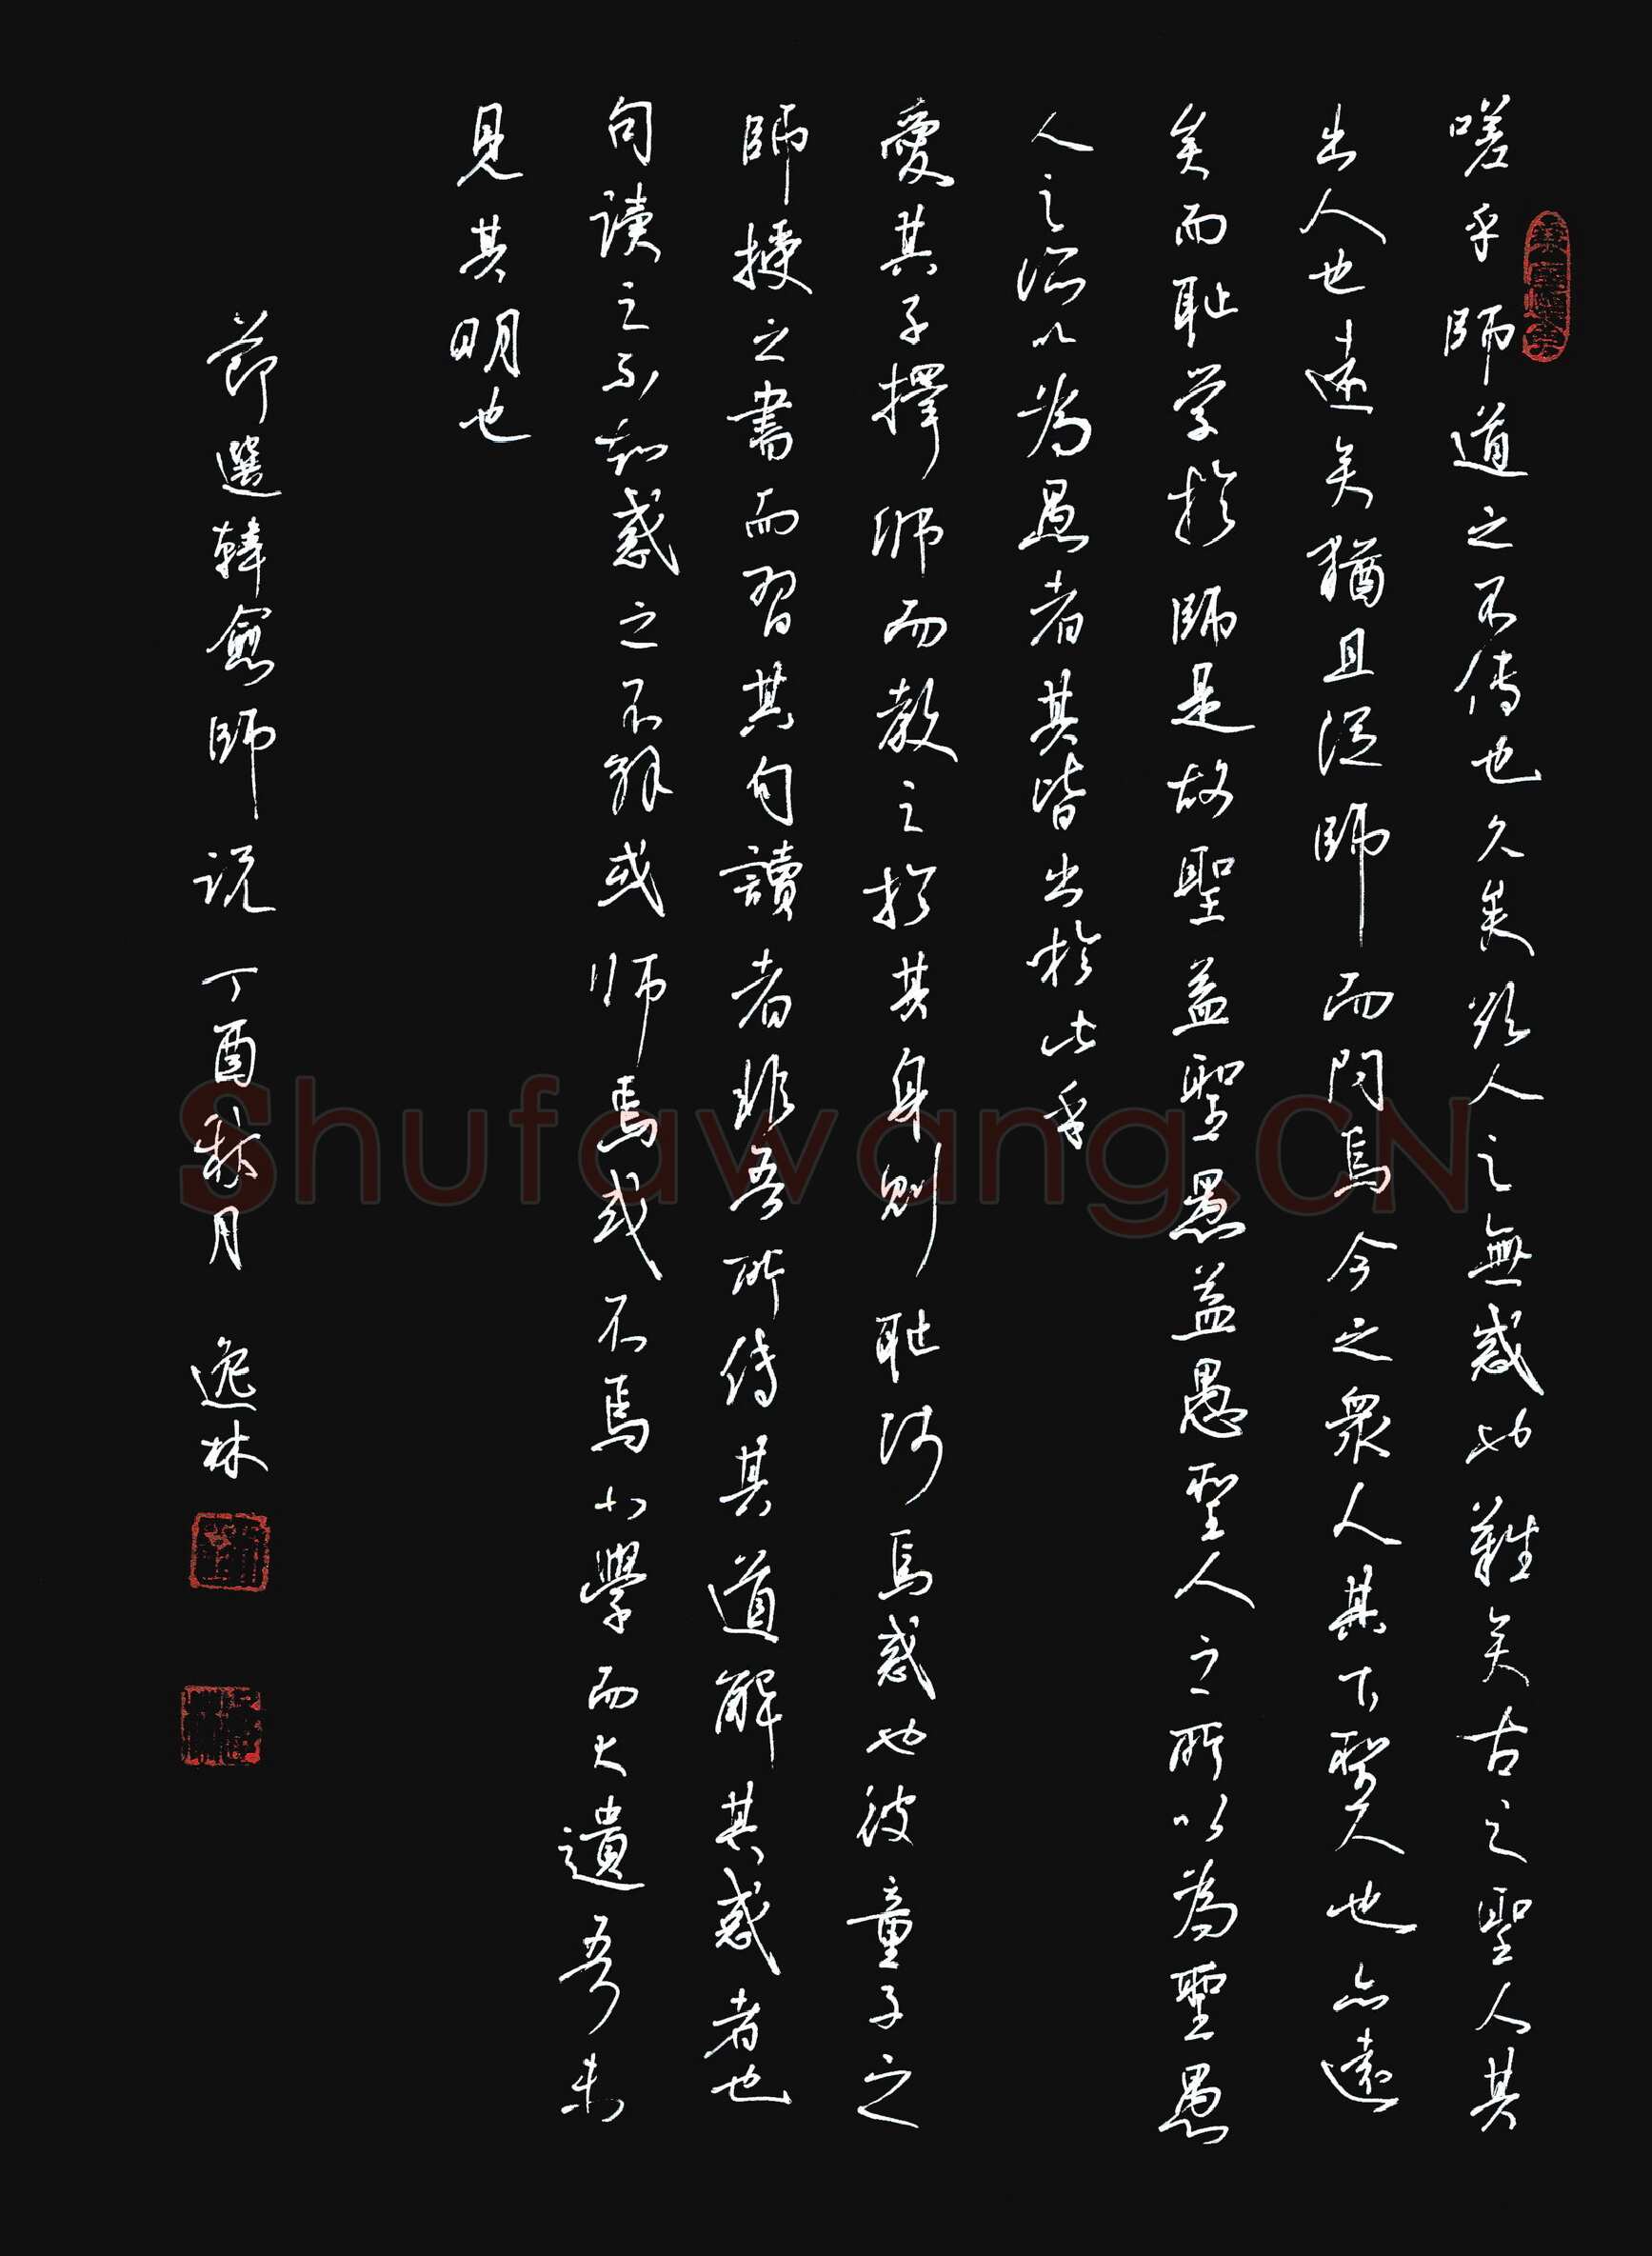 嗟乎師道之不传也久矣欲人之無惑也難矣古之聖人其
出人也遠矣猶且從師而問焉今之衆人其下聖人也亦遠
矣而耻学於師是故聖益聖愚益愚聖人之所以為聖愚
人之所以為愚者其皆出於此乎
愛其子擇师而教之於其身則耻师焉惑也彼童子之
師授之書而習其句讀者非吾所传其道解其惑者也
句读之不知惑之不解或师焉或不焉小學而大遺吾未
見其明也
節選韓愈師说 丁酉秋月 逸林
Shufawang.CN